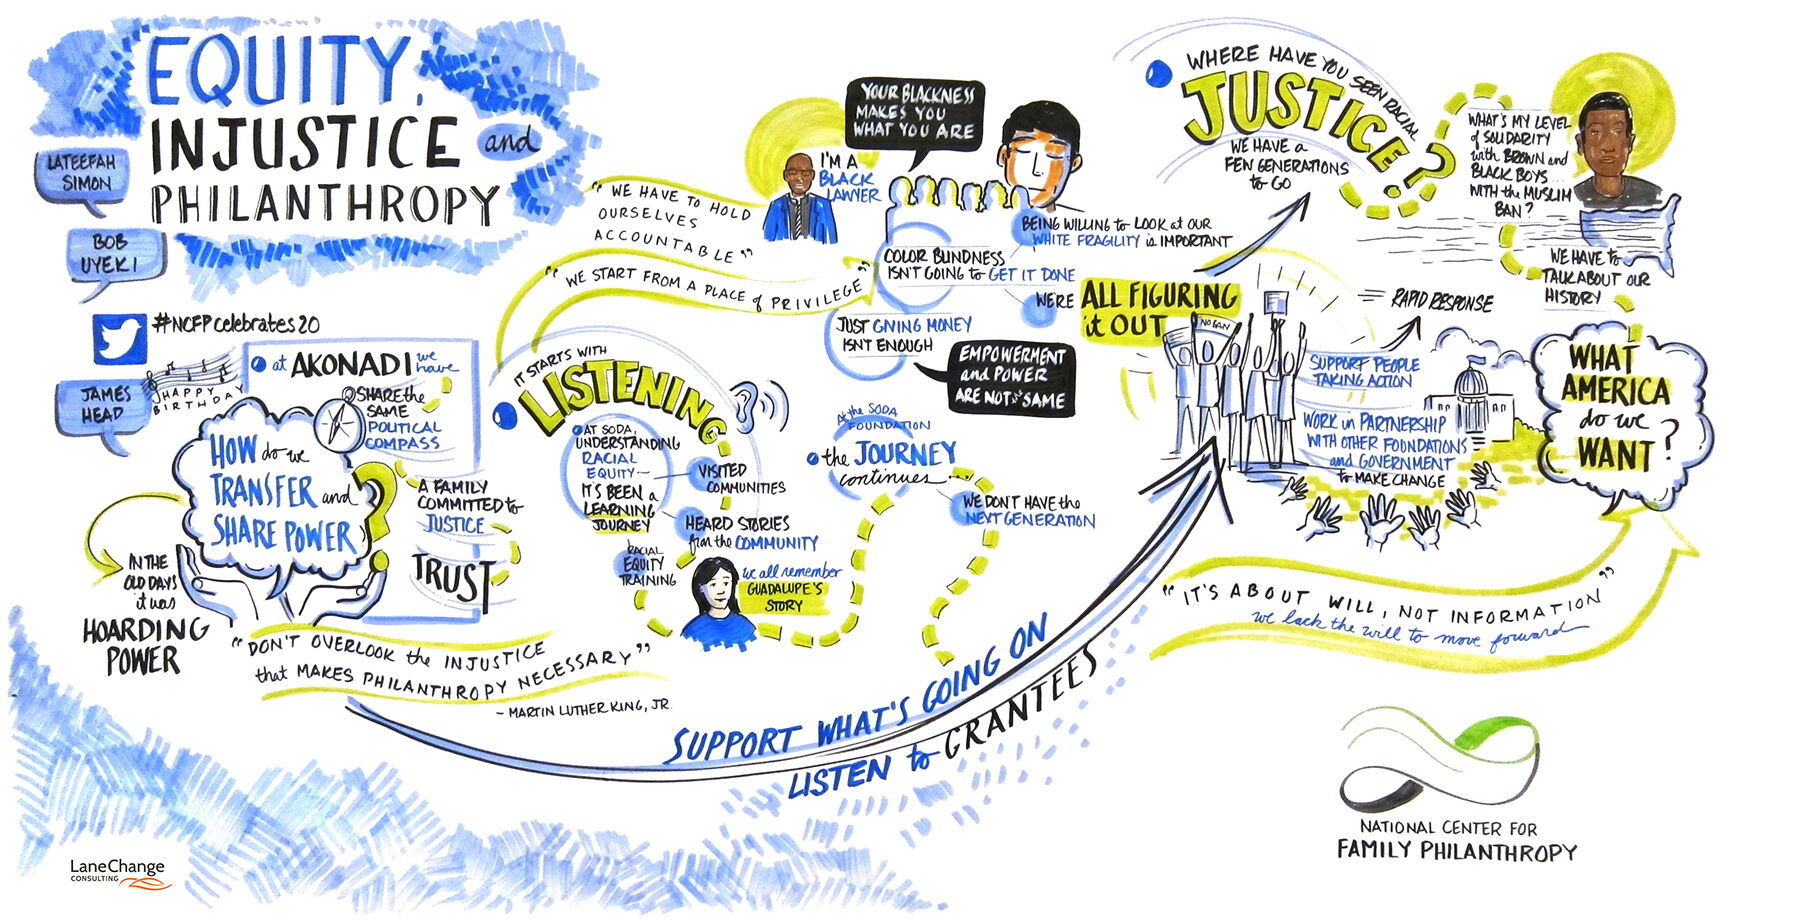 EQUITY,
INJUSTICE and
PHILANTHROPY
LATEEFAH
SIMON
BOB
UYEKI
#NCFPcelebrates20
JAMES
HEAD
HAPPY
BIRTHDAY
at AKONADI we
have
SHARE the
SAME
POLITICAL
COMPASS
HOW do we
TRANSFER and
SHARE POWER
?
A FAMILY
COMMITTED to
JUSTICE
TRUST
IN THE
OLD DAYS
it was
HOARDING
POWER
"DON'T OVERLOOK the INJUSTICE
that MAKES PHILANTHROPY NECESSARY"
- MARTIN LUTHER KING, JR.
IT STARTS WITH
LISTENING
AT SODA,
UNDERSTANDING
RACIAL
EQUITY—
IT'S BEEN a
LEARNING
JOURNEY
VISITED
COMMUNITIES
HEARD STORIES
from the COMMUNITY
RACIAL
EQUITY
TRAINING
we all remember
GUADALUPE'S
STORY
"WE HAVE TO HOLD
OURSELVES
ACCOUNTABLE"
"WE START FROM A PLACE of PRIVILEGE"
I'M A
BLACK
LAWYER
YOUR BLACKNESS
MAKES YOU
WHAT YOU ARE
BEING WILLING to LOOK at OUR
WHITE FRAGILITY is IMPORTANT
COLOR BLINDNESS
ISN'T GOING to GET IT DONE
WE'RE ALL FIGURING
it OUT
JUST GIVING MONEY
ISN'T ENOUGH
EMPOWERMENT
and POWER
ARE NOT the SAME
At the SODA
FOUNDATION
the JOURNEY
continues...
WE DON'T HAVE the
NEXT GENERATION
SUPPORT WHAT'S GOING ON
LISTEN to GRANTEES
WHERE HAVE YOU SEEN RACIAL
JUSTICE?
WE HAVE a
FEW GENERATIONS
to GO
WHAT'S MY LEVEL
of SOLIDARITY
with BROWN and
BLACK BOYS...
WITH the MUSLIM
BAN?
WE HAVE to
TALK ABOUT OUR
HISTORY
RAPID RESPONSE
NO BAN
SUPPORT PEOPLE
TAKING ACTION
WORK in PARTNERSHIP
WITH OTHER FOUNDATIONS
and GOVERNMENT
to MAKE CHANGE
WHAT
AMERICA
do we
WANT?
"IT'S ABOUT WILL, NOT INFORMATION"
we lack the will to move forward
NATIONAL CENTER FOR
FAMILY PHILANTHROPY
LaneChange
CONSULTING